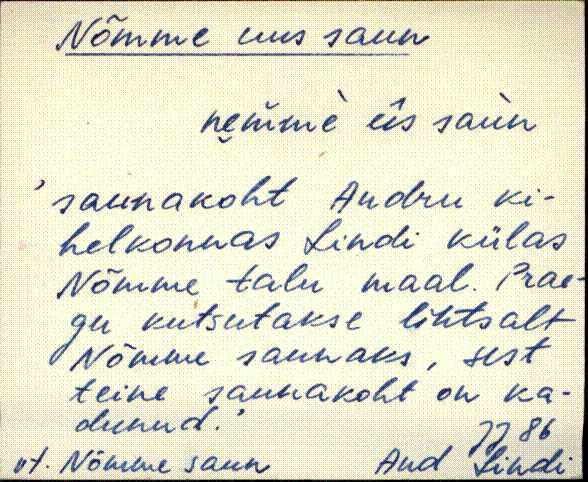 Nõmme uus saun
ne̮m̆mè ūs saùn
'saunakoht Audru ki-
helkonnas Lindi külas
Nõmme talu maal. Prae-
gu kutsutakse lihtsalt
Nõmme saunaks, sest
teine saunakoht on ka-
dunud.'
JJ 86
vt. Nõmme saun Aud Lindi